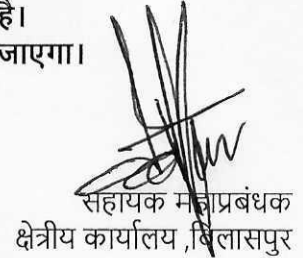 है।
जाएगा।
सहायक महाप्रबंधक
क्षेत्रीय कार्यालय ,बिलासपुर